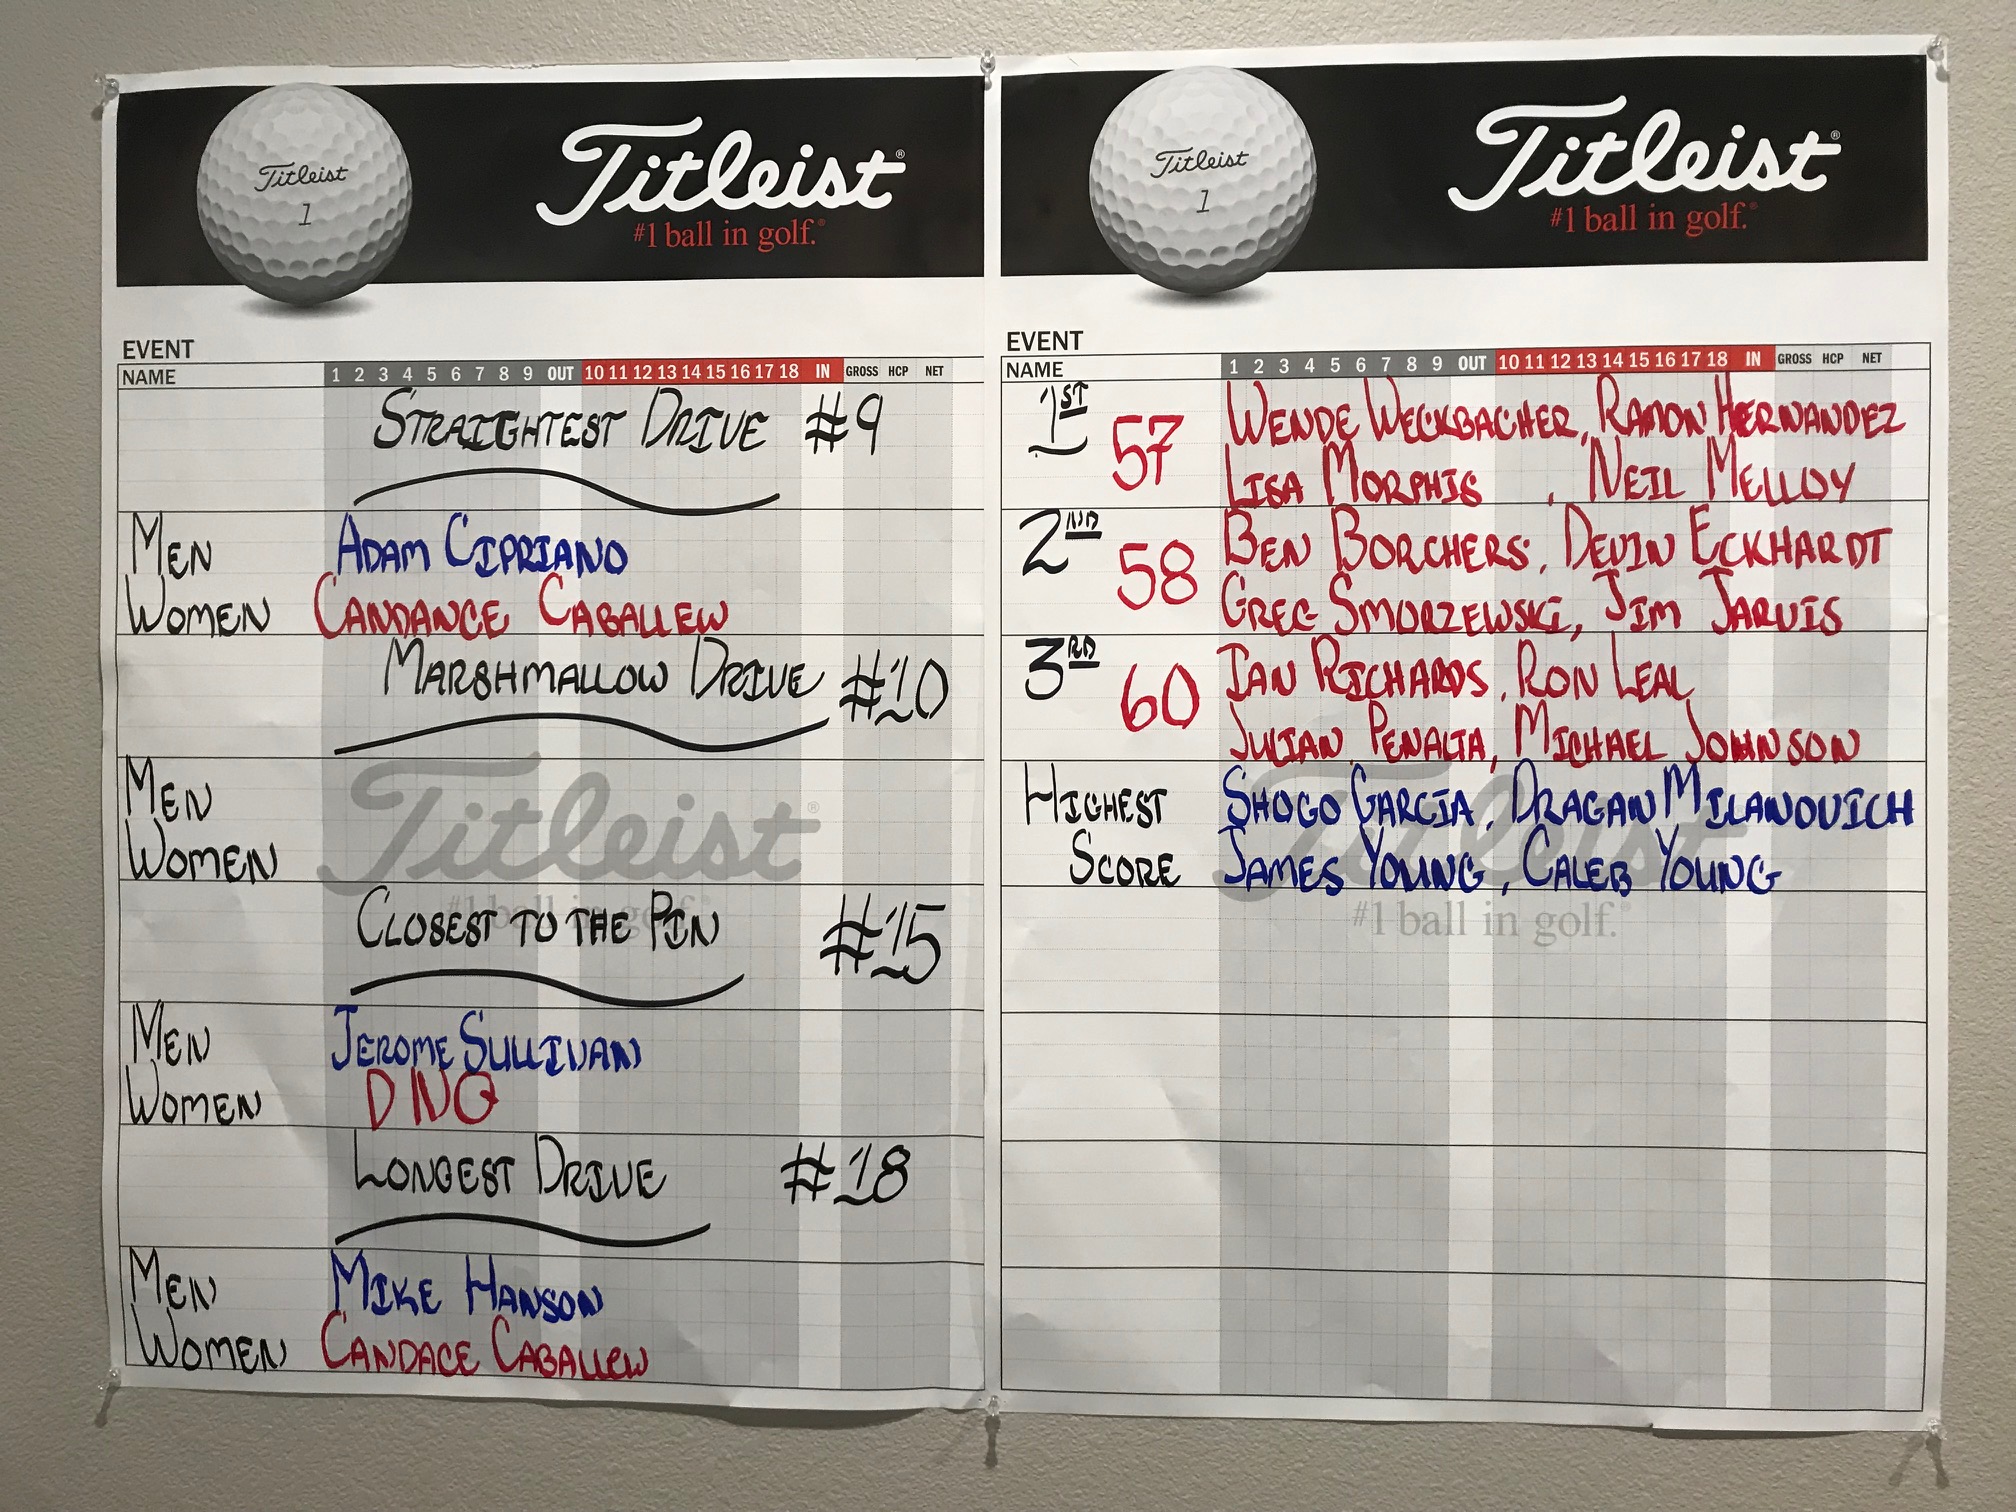 Titleist
1
Titleist®
#1 ball in golf.®
EVENT
NAME 1 2 3 4 5 6 7 8 9 OUT 10 11 12 13 14 15 16 17 18 IN GROSS HCP NET
STRAIGHTEST DRIVE #9
MEN ADAM CIPRIANO
WOMEN CANDANCE CABALLEW
MARSHMALLOW DRIVE #10
MEN
WOMEN
Titleist®
#1 ball in golf.®
CLOSEST TO THE PIN #15
MEN JEROME SULLIVAN
WOMEN DNQ
LONGEST DRIVE #18
MEN MIKE HANSON
WOMEN CANDACE CABALLEW
Titleist
1
Titleist®
#1 ball in golf.®
EVENT
NAME 1 2 3 4 5 6 7 8 9 OUT 10 11 12 13 14 15 16 17 18 IN GROSS HCP NET
1ST 57 WENDE WECKBACHER, RAMON HERNANDEZ
LISA MORPHIS , NEIL MELLOY
2ND 58 BEN BORCHERS, DEVIN ECKHARDT
GREG SMORZEWSKI, JIM JARVIS
3RD 60 IAN RICHARDS, RON LEAL
JULIAN PENALTA, MICHAEL JOHNSON
HIGHEST SHOGO GARCIA, DRAGAN MILANOVICH
SCORE JAMES YOUNG, CALEB YOUNG
Titleist
#1 ball in golf.®